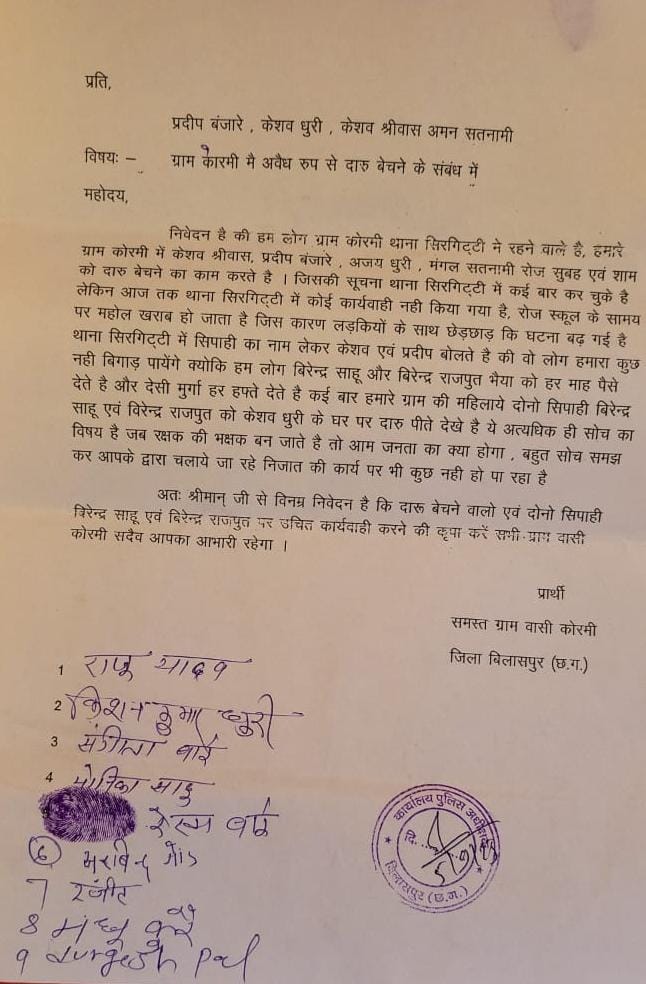 प्रति,
प्रदीप बंजारे , केशव धुरी , केशव श्रीवास अमन सतनामी
विषयः – ग्राम कोरमी मै अवैध रुप से दारु बेचने के संबंध में
महोदय,
निवेदन है की हम लोग ग्राम कोरमी थाना सिरगिट्टी मे रहने वाले है, हमारे
ग्राम कोरमी में केशव श्रीवास, प्रदीप बंजारे , अजय धुरी , मंगल सतनामी रोज सुबह एवं शाम
को दारु बेचने का काम करते है । जिसकी सूचना थाना सिरगिट्टी में कई बार कर चुके है
लेकिन आज तक थाना सिरगिट्टी में कोई कार्यवाही नही किया गया है, रोज स्कूल के सामय
पर महोल खराब हो जाता है जिस कारण लड़कियों के साथ छेड़छाड़ कि घटना बढ़ गई है
थाना सिरगिट्टी में सिपाही का नाम लेकर केशव एवं प्रदीप बोलते है की वो लोग हमारा कुछ
नही बिगाड़ पायेंगे क्योकि हम लोग बिरेन्द्र साहू और बिरेन्द्र राजपुत भैया को हर माह पैसे
देते है और देसी मुर्गा हर हफ्ते देते है कई बार हमारे ग्राम की महिलाये दोनो सिपाही बिरेन्द्र
साहू एवं विरेन्द्र राजपुत को केशव धुरी के घर पर दारु पीते देखे है ये अत्यधिक ही सोच का
विषय है जब रक्षक की भक्षक बन जाते है तो आम जनता का क्या होगा , बहुत सोच समझ
कर आपके द्वारा चलाये जा रहे निजात की कार्य पर भी कुछ नही हो पा रहा है
अतः श्रीमान् जी से विनम्र निवेदन है कि दारू बेचने वालो एवं दोनो सिपाही
बिरेन्द्र साहू एवं बिरेन्द्र राजपुत पर उचित कार्यवाही करने की कृपा करें सभी ग्राम वासी
कोरमी सदैव आपका आभारी रहेगा ।
प्रार्थी
समस्त ग्राम वासी कोरमी
जिला बिलासपुर (छ.ग.)
1 राजू यादव
2 किशन कुमार धुरी
3 संगीता
4 मोनिका साहू
5
6
7 रंजीत
8
9 durgesh pal
कार्यालय पुलिस अधीक्षक
दि.
जिलासपुर (छ.ग.)